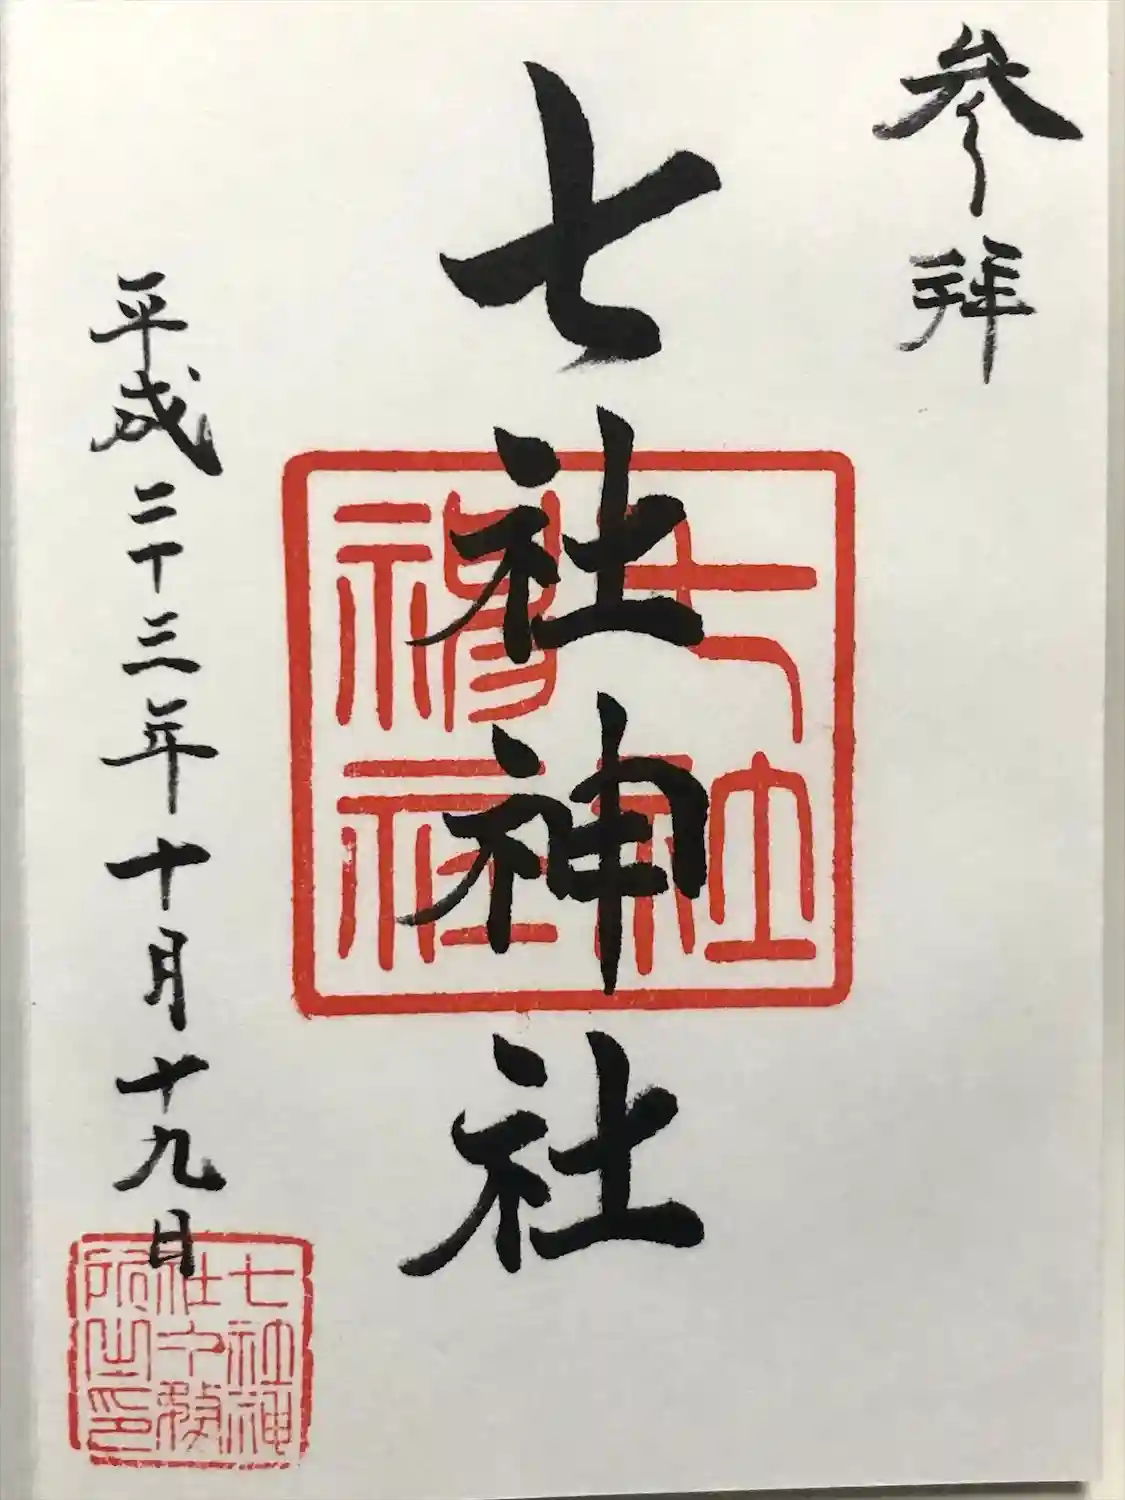 參拜
七社神社
七社神社
平成二十三年十月十九日
七社神
社之務
所之印